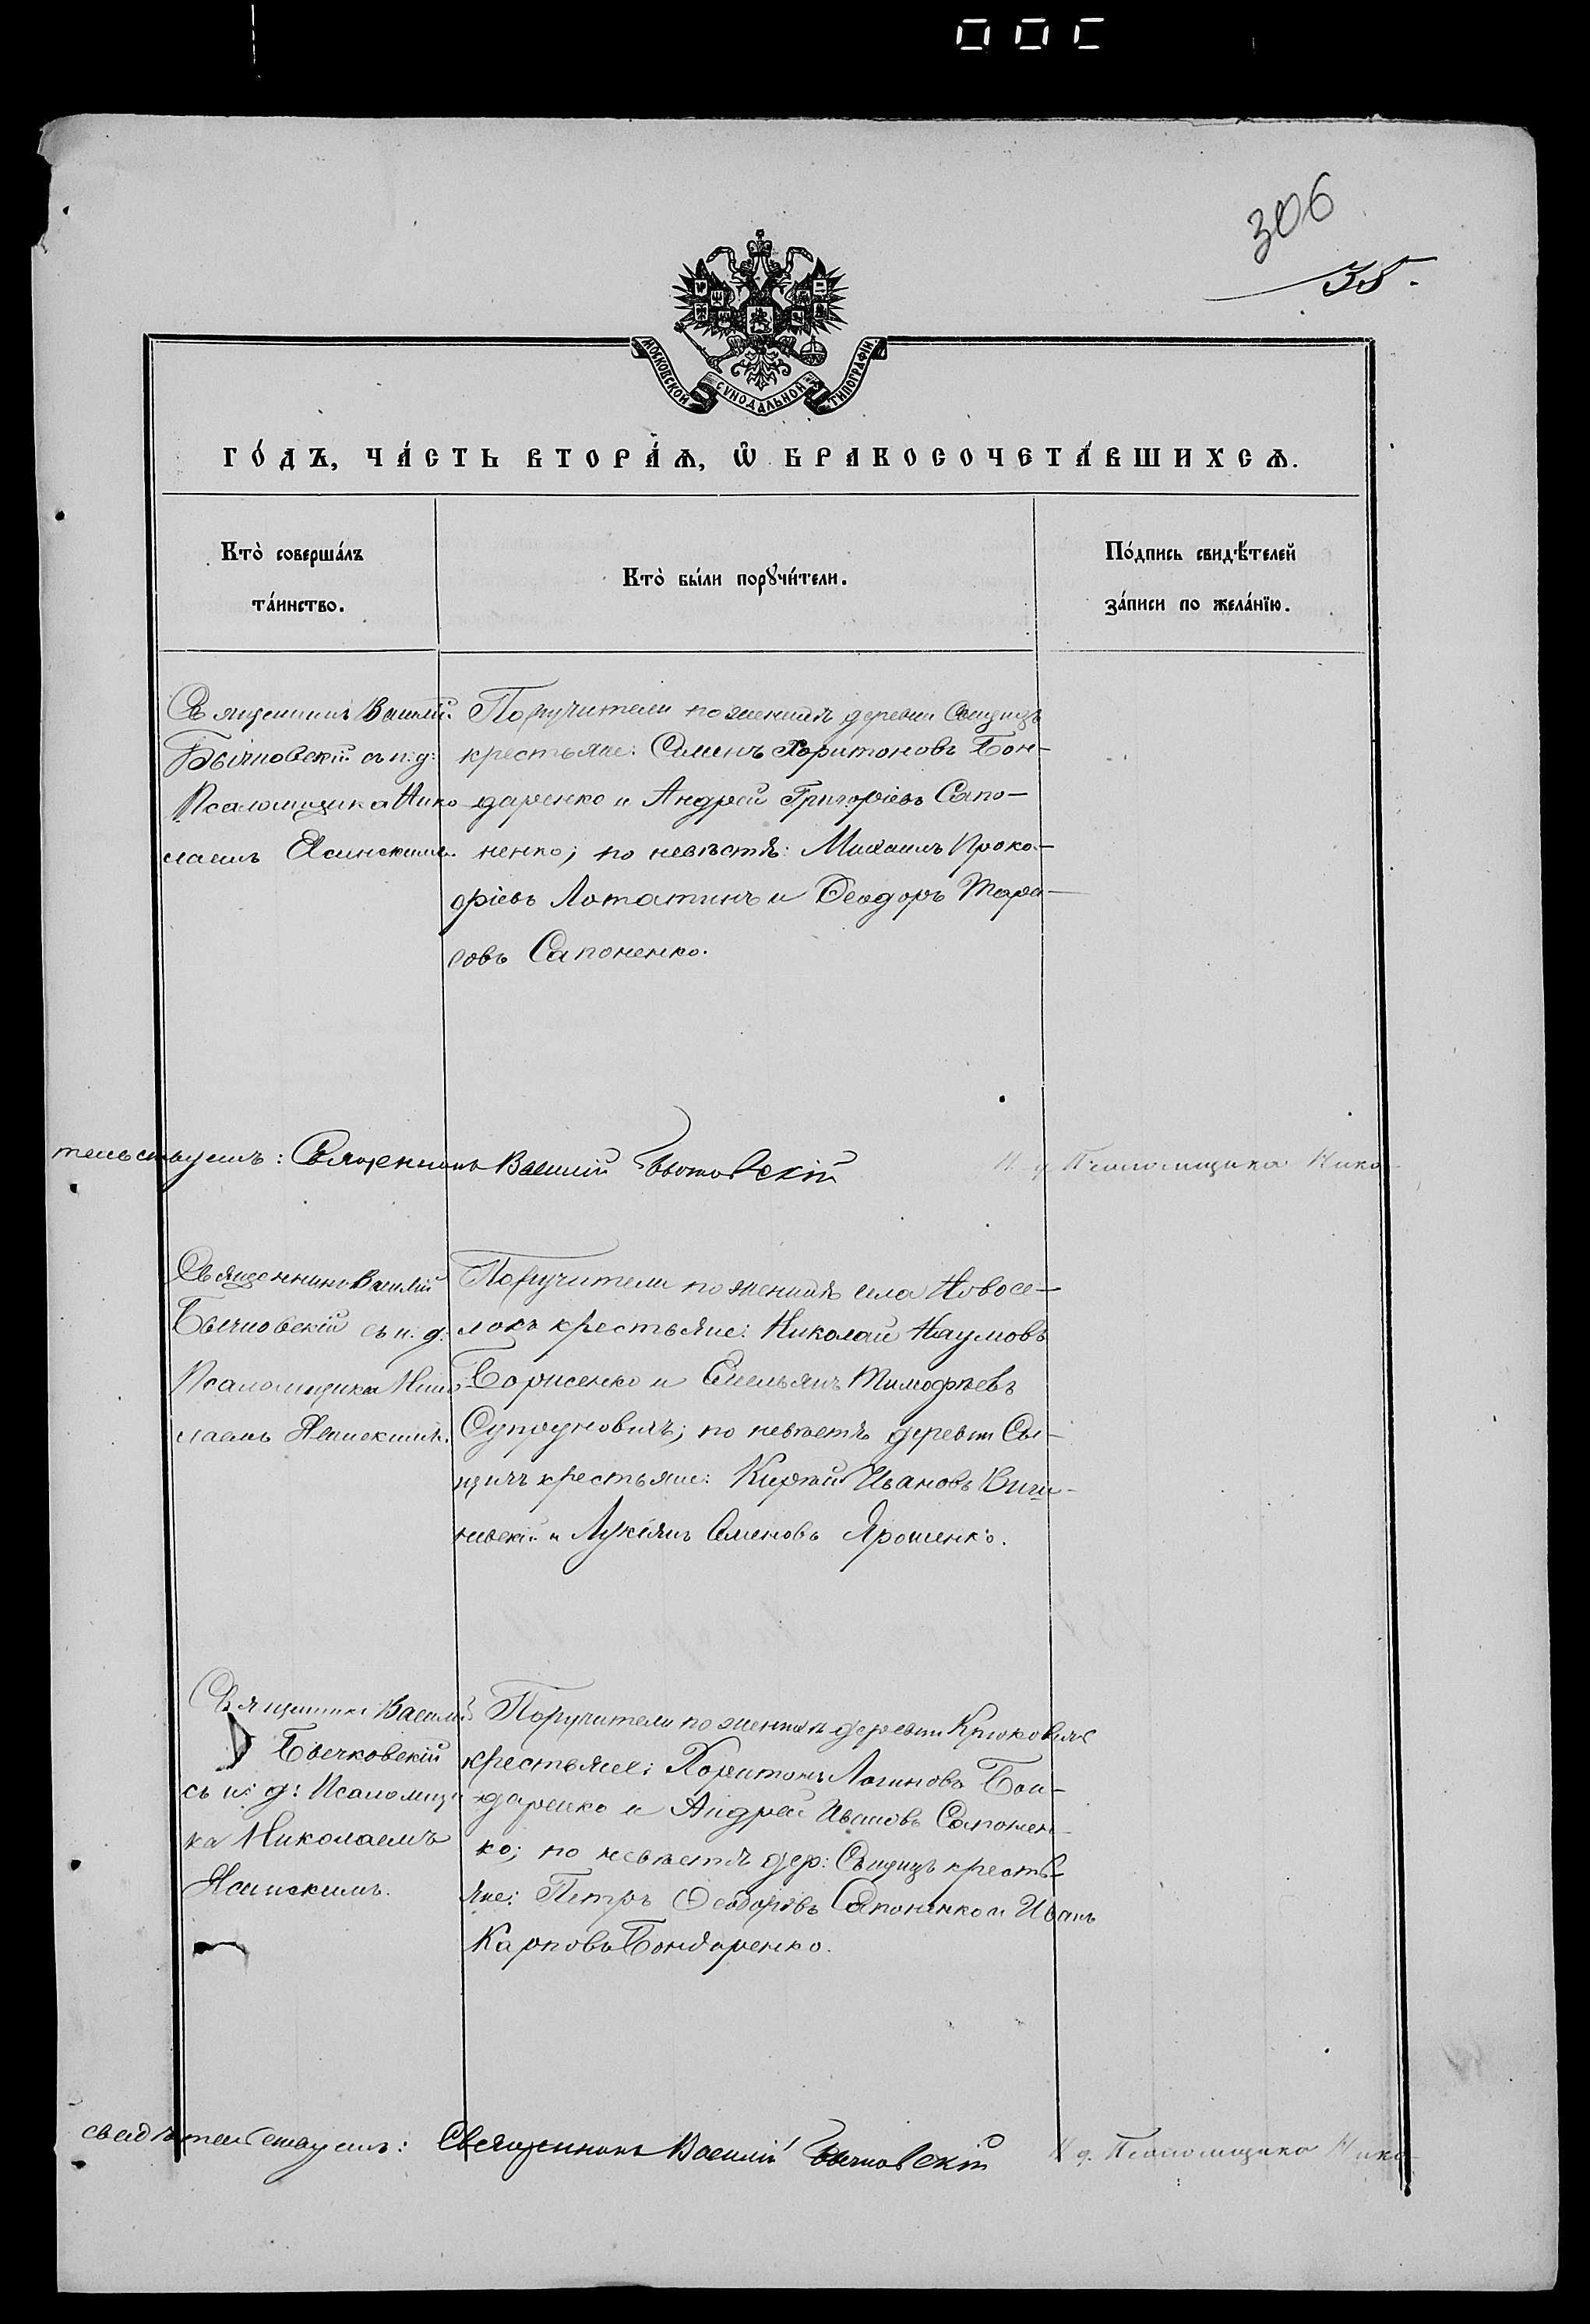 306
35.
МОСКОВСКОЙ СУНОДАЛЬНОЙ ТИПОГРАФІИ.
ГО́ДЪ, ЧА́СТЬ ВТОРА́Ѧ, Ѡ БРАКОСОЧЕТА́ВШИХСѦ.
Кто̀ соверша́лъ
та́инство.
Кто̀ бы́ли порꙋчи́тели.
По́дпись свидѣ́телей
за́писи по жела́нїю.
Священникъ Василій
Бычковскій съ и: д:
Псаломщика Нико
лаемъ Ясинскимъ.
Поручители по женихѣ деревни Свидицъ
крестьяне: Семенъ Харитоновъ Бон-
даренко и Андрей Григоріевъ Сапо-
ненко; по невѣстѣ: Михаилъ Проко-
фіевъ Лотатинъ и Ѳеодоръ Тара-
совъ Сапоненко.
тельствуемъ: Священникъ Василій Бычковскій И. д. Псаломщика Нико
Священникъ Василій
Бычковскій съ и. д.
Псаломщика Нико
лаемъ Ясинскимъ.
Поручители по женихѣ села Новосе-
локъ крестьяне: Николай Наумовъ
Борисенко и Емельянъ Тимофѣевъ
Супруновичъ; по невѣстѣ деревни
крестьяне: Ивановъ
и Лукіянъ Семеновъ Ярошенко.
Священникъ Василій
Бычковскій
съ и: д: Псаломщи
ка Николаемъ
Ясинскимъ.
Поручители по женихѣ деревни Крюковичъ
крестьяне: Харитонъ Логиновъ Бон-
даренко и Андрей Ивановъ Сапонен-
ко; по невѣстѣ дер: Свидицъ кресть-
яне: Петръ Ѳеодоровъ Сапоненко и Иванъ
Карповъ Бондаренко.
свидѣтельствуемъ: Священникъ Василій Бычковскій И. д. Псаломщика Нико-